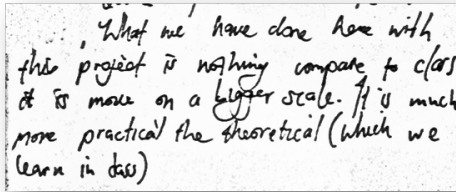 What we have done here with
this project is nothing compare to class
it is more on a bigger scale. It is much
more practical the theoretical (which we
learn in class)